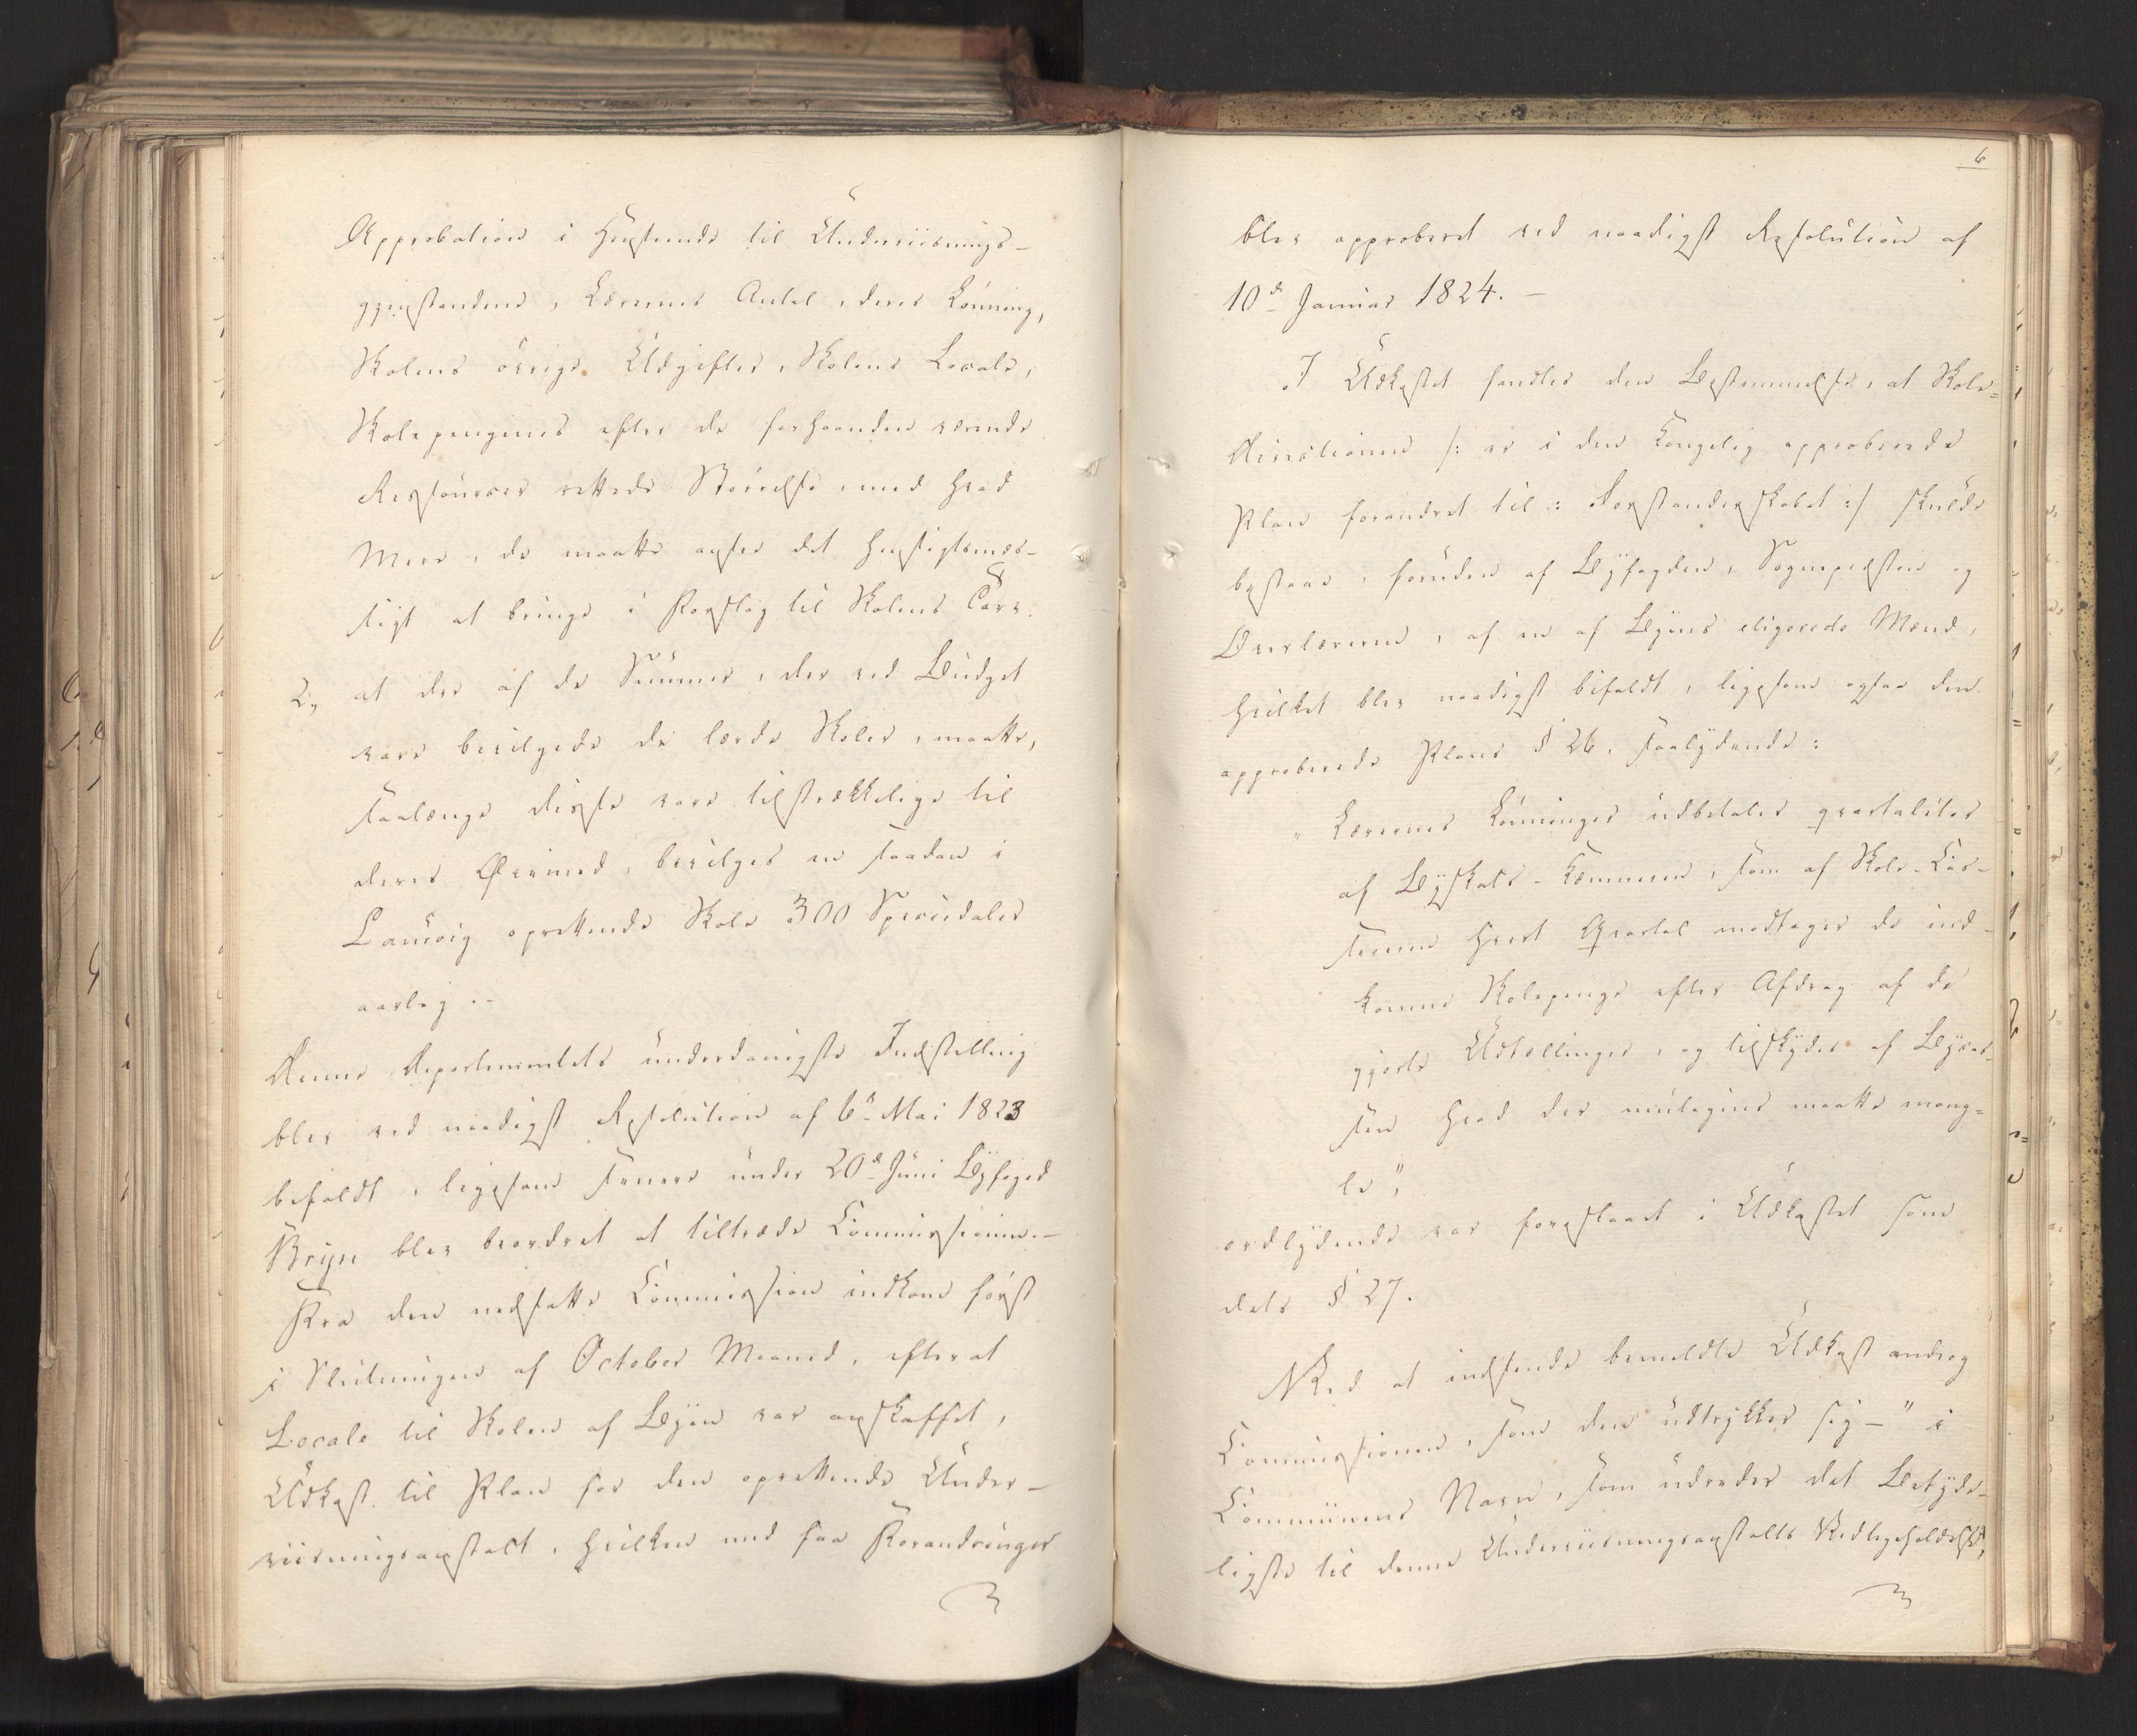 Approbation i Henseende til Underviisnings-
gjenstandene, Lærernes Antal, deres Lønning,
Skolens øvrige Udgifter, Skolens Locale,
Skolepengenes efter de forhaanden værende
Ressourcer rettede Størrelse, med hvad
Meer, de maatte ansee det hensigtsmæs-
sigt at bringe i Forslag til Skolens Tarv.
2, at der af de Summer, der ved Budget
vare bevilgede de lærde Skoler, maatte,
saalænge disse vare tilstrækkelige til
deres Øiemed, bevilges en saadan i
Laurvig oprettende Skole 300 Speciedaler
aarlig.-
Denne Departementets underdanigste Indstilling
blev ved naadigst Resolution af 6te Mai 1823
bifaldt, ligesom senere under 20de Juni Byfoged
Bryn blev beordret at tiltræde Commissionen.-
Fra den nedsatte Commission indkom først
i Slutningen af October Maaned, efterat
Locale til Skolen af Byen var anskaffet,
Udkast til Plan for den oprettende Under-
viisningsanstalt, hvilken med faa Forandringer
6
blev approberet ved naadigst Resolution af
10de Januar 1824.-
I Udkastet fandtes den Bestemmelse, at Skole-
Directionen /: er i den Kongelig approberede
Plan forandret til: Forstanderskabet :/ skulde
bestaae, foruden af Byfogden, Sognepræsten og
Overlæreren, af en af Byens eligerede Mænd,
hvilket blev naadigst bifaldt, ligesom ogsaa den
approberede Plans § 26, saalydende:
"Lærernes Lønninger udbetales qvartaliter
af Byskats-Kæmneren, som af Skole-Cas-
sereren hvert Qvartal modtager de ind-
komne Skolepenge efter Afdrag af de
gjorte Udtællinger, og tilskydes af Bykas-
sen hvad der muligens maatte mang-
le",
ordlydende var foreslaaet i Udkastet som
dets § 27.
Ved at indsende bemeldte Udkast androg
Commissionen, som den udtrykker sig -" i
Communens Navn, som udreder det Betyde-
ligste til denne Underviisningsanstalts Vedligeholdelse,